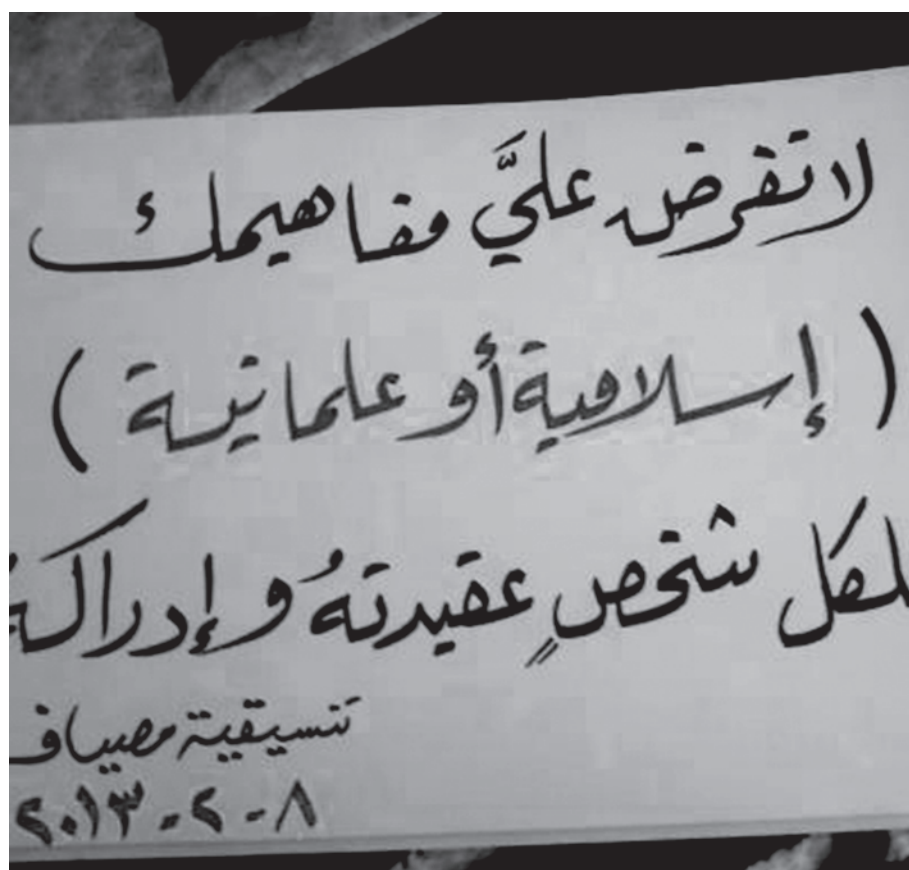 لا تفرض عليَّ مفاهيمك
( إسلامية أو علمانية )
لكل شخصٍ عقيدتهُ وإدراكهُ
تنسيقية مصياف
٨-٢-٢٠١٣